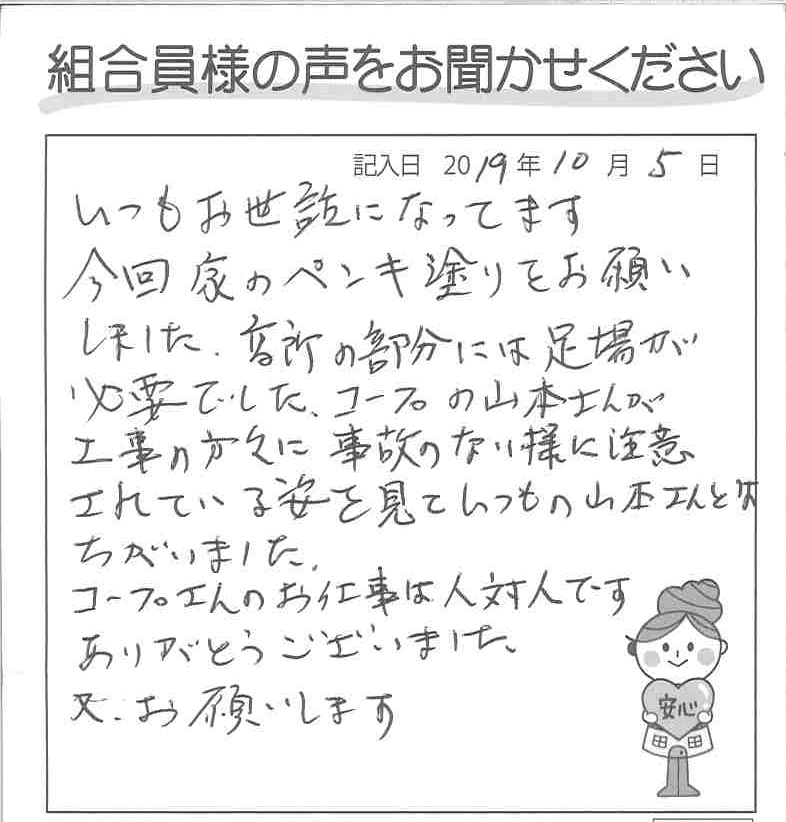 組合員様の声をお聞かせください
記入日 2019年10月5日
いつもお世話になってます
今回家のペンキ塗りをお願い
しました、高所の部分には足場が
必要でした、コープの山本さんが
工事の方々に事故のない様に注意
されている姿を見ていつもの山本さんと
ちがいました、
コープさんのお仕事は人対人です
ありがとうございました。
又、お願いします
安心